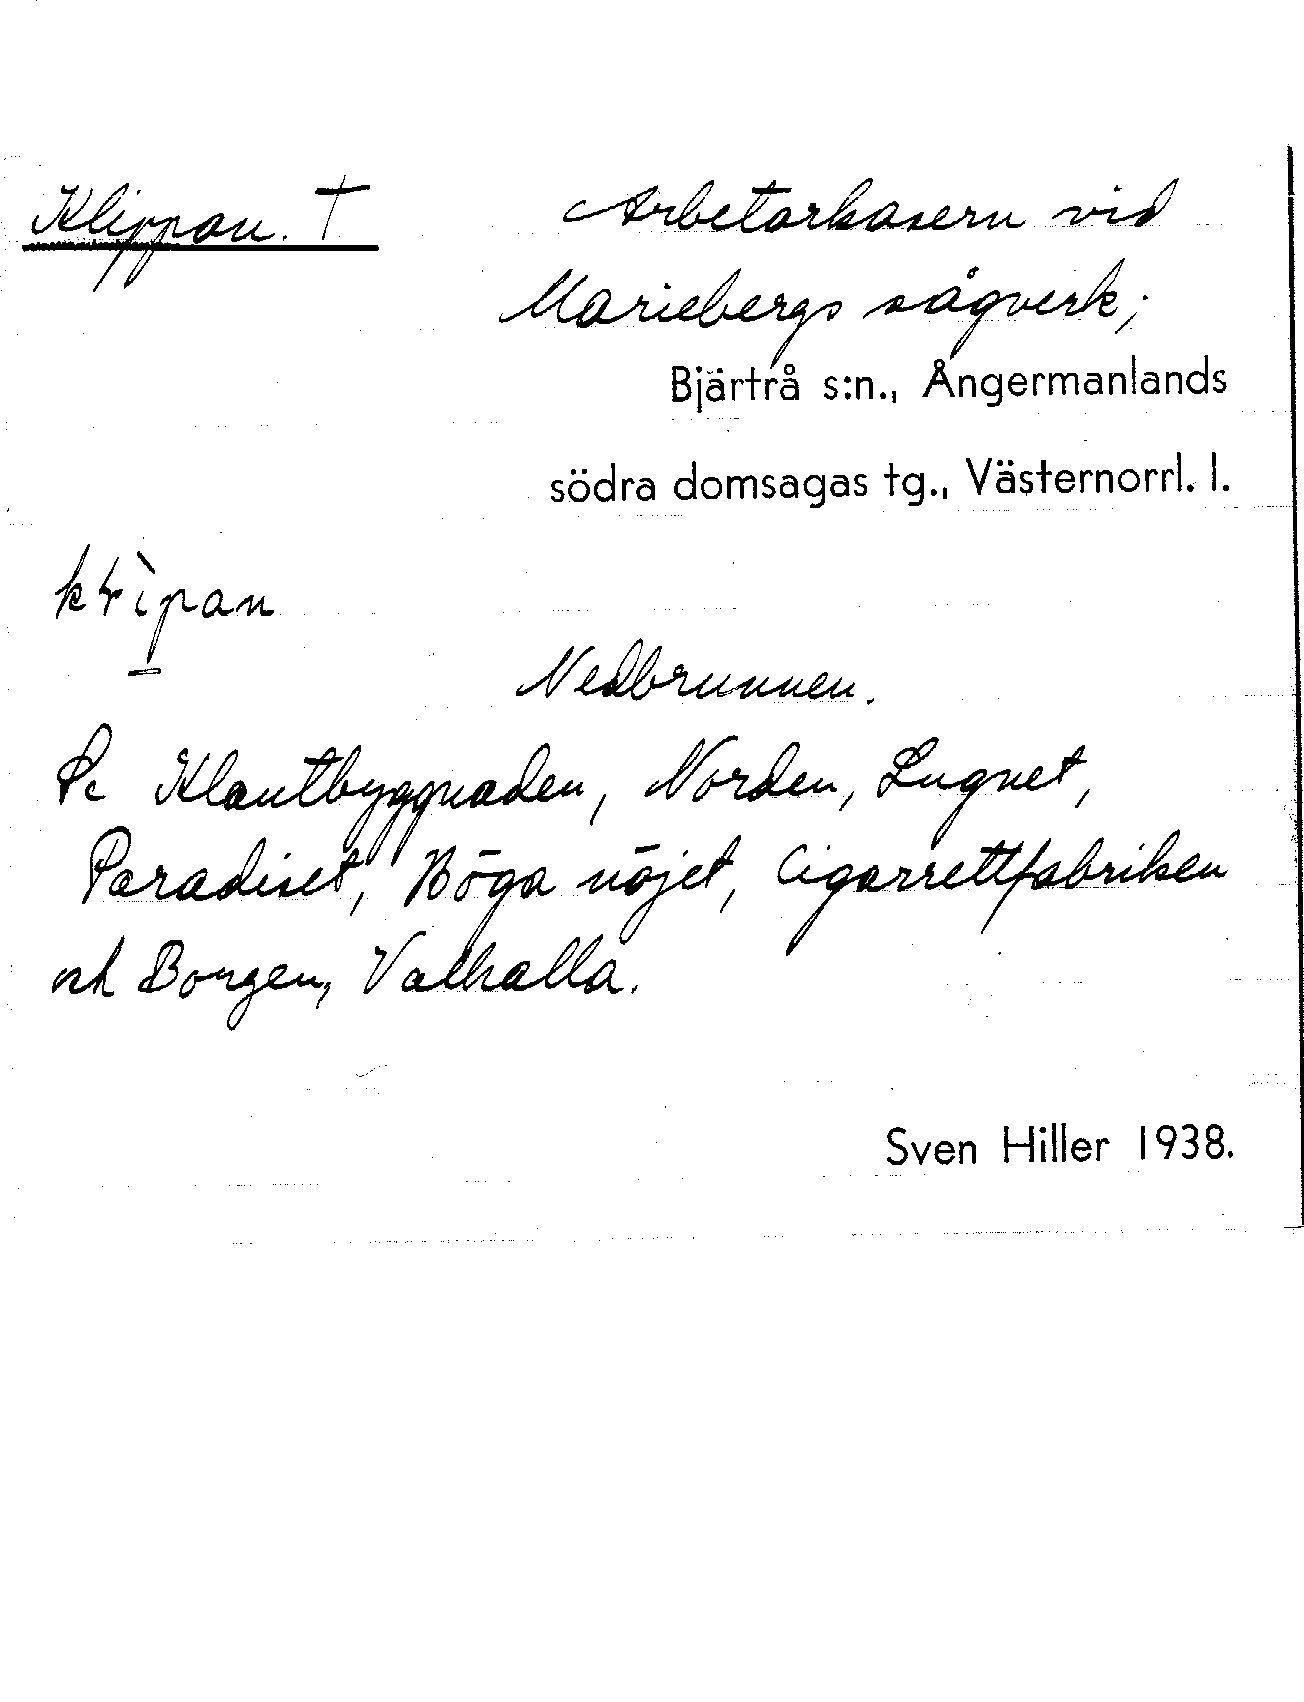 Klippan. † Arbetarkasern vid
Mariebergs sågverk;
Bjärtrå s:n., Ångermanlands
södra domsagas tg., Västernorrl. l.
Nedbrunnen.
Se Klantbyggnaden, Norden, Lugnet,
Paradiset, Höga nöjet, Cigarrettfabriken
och Borgen, Valhalla.
Sven Hiller 1938.